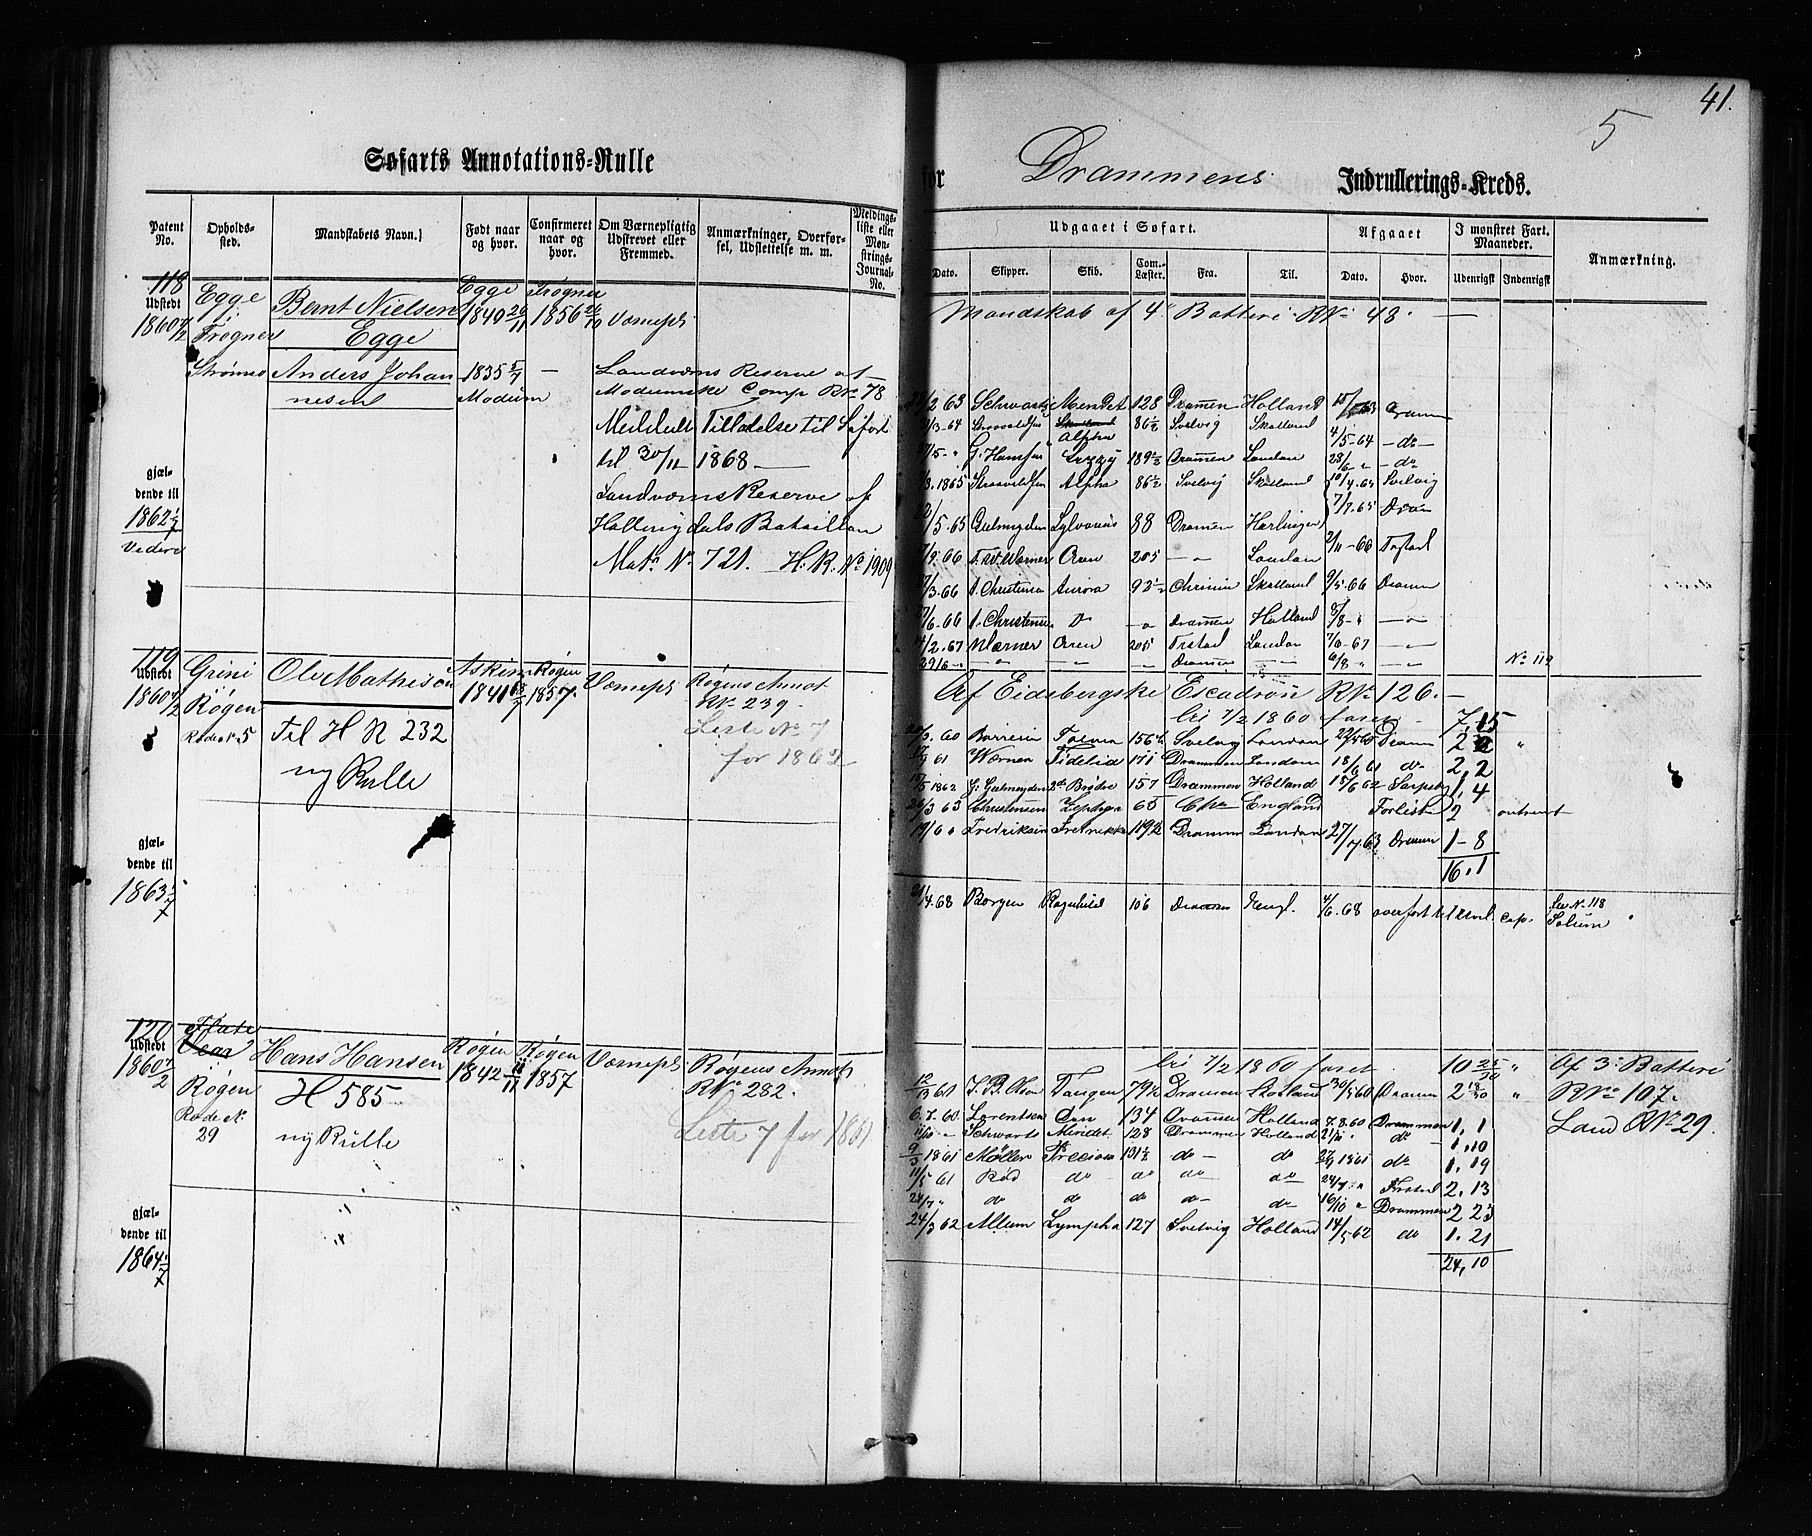 41.
5
Søfarts Annotations-Rulle
for Drammens Indrullerings-Kreds.
Patent No. | Opholds-sted. | Mandskabets Navn. | Født naar og hvor. | Confirmeret naar og hvor. | Om Værnepligtig Udskrevet eller Fremmed. | Anmærkninger, Overførsel, Udslettelse m. m. | Meldings-liste eller Mønstrings-Journal-No.
Udgaaet i Søfart. | Afgaaet | I mønstret Fart. Maaneder. | Anmærkning.
Dato. | Skipper. | Skib. | Com.-Læster. | Fra. | Til. | Dato. | Hvor. | Udenrigsk | Indenrigsk
118 Egge Bernt Nielsen Egge Frogner
Udstedt 1860 7/2 Frogner Egge 1840 20/11 1856 26/10 Værnepl:
Mandskab af 4de Batteri RNo 48.
Strømsø Anders Johannesen 1835 5/7 Modum — Landværns Reserve af
Modumske Comp RNo 78
Meddelt Tilladelse til Søfart
til 30/11 1868
Landværns Reserve af
Hallingdals Bataillon
Mak. No 721. H. R. No 1909
gjældende til
1862 1/7
Videre
2 63 Schwartz Mendet 128 Dramen Holland 63 Dramn
/3-64 Alpha 86½ Svelvig Skotland 4/5-64 — do —
/5 - " G. Hansen Lizzy 189½ Dramen London 28/6 — do
/3. 1865 Alpha 86½ Svelvig Skotland 10/4.65 Svelvig
7/7.65 Dramn
/5.65 Gulmeyden Sylvanus 88 Dramen Harlingen
/9.66 Wærner Oren 205 — " — London 2/11-66 Fastad
/3.66 A. Christensen Aurora 92½ Skotland 9/5.66 Dramn
/6.66 A. Christensen Do — " Dramen Holland 8/8-" — " —
14/2.67 Wærner Oren 205 London 7/6-67 — " —
29/6-" — " — — " — — " Dramen — " — 6/8-" — " — No 119
119 Grini Ole Mathisen Asker Røgen Værnepl: Røgens Annot
Udstedt 1860 7/2 Røgen Til H R 232 1841 1857. RNo 239.
Rode No 5 ny Rulle Liste No 7 for 1862
Af Eidsbergske Escadron RNo 126.
til 7/2 1860 faret 7,15
/3 60 Børresen 156½ Svelvig London 22/5 60 Dramn 2,
/9 61 Wærner Fidelia 171 Drammen London 18/6 61 do 2,2
15/5 1862 G: Gulmeyden 2de Brødre 157 Drammen Holland 15/6 62 Sarpsbg 1,4
26/3 63 Christensen Zephyr 65 Chra England Forlist 2 ontrent
19/6 " Fredriksen Fredrikke 119½ Dramm London 27/7.63 Dramn 1-8
16.1
gjældende til
1863 1/7
21/4.68 Borgen Ragnhild 106 Dramen Engl. 4/6.68 overført til Hvd. Cap. See No 118
Solum
120 Flate Hans Hansen Røgen Røgen Værnepl: Røgens Annot
Udstedt 1860 7/2 Røgen H 585 1842 1857 RNo 282.
Rode No 29 ny Rulle Liste 7 for 1861
til 7/2 1860 faret 10 25/30 " Af 3: Batteri
12/3 60 J. B. Olson Tangen 79½ Dramen Skotland 30/5 60 Dramn 2 18/30 " RNo 107.
6.7.60 Lorentsen Orn 134 Dramsen Holland 7.8.60 Drammen 1,1 Land RNo 29.
11/10 - Schwartz Mindet 128 Drammen Holland 21/11 do 1,10
9/3 1861 Møller Preciosa 131½ do do 27/4 1861 do 1,19
11/5 61 Rød do do do do 24/7 " Frstad 2.13
24/7 " do do do do do 16/10 " Drammen 2 23
24/3 62 Allum Lympha 127 Svelvig Holland 14/5 62 do 1.21
24,10
gjældende til
1864 1/7